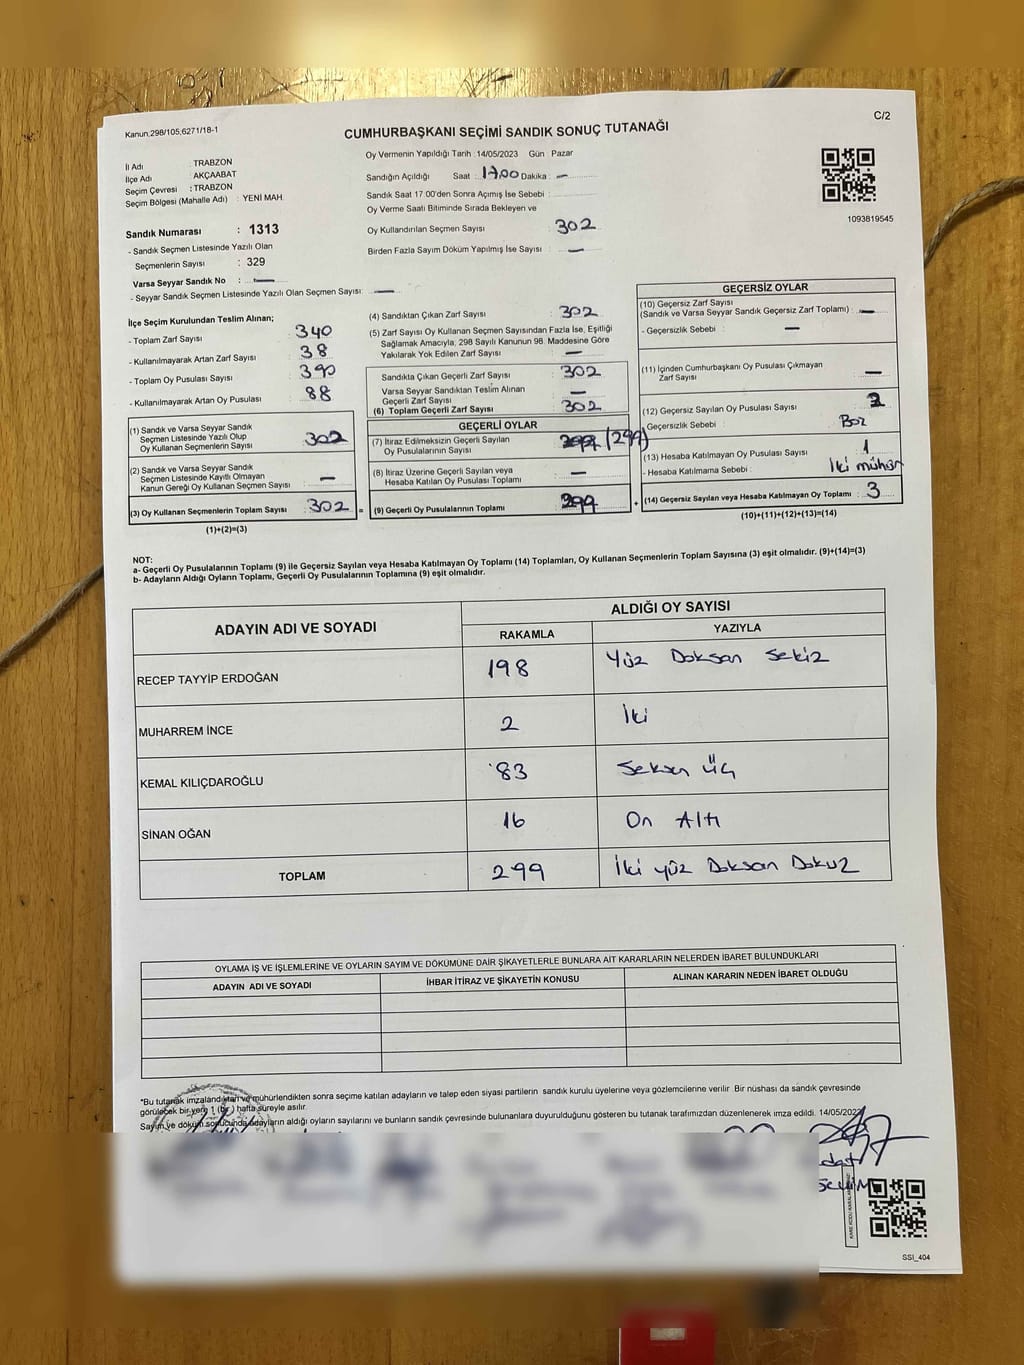 Kanun;298/105;6271/18-1
C/2
CUMHURBAŞKANI SEÇİMİ SANDIK SONUÇ TUTANAĞI
İl Adı : TRABZON
İlçe Adı : AKÇAABAT
Seçim Çevresi : TRABZON
Seçim Bölgesi (Mahalle Adı) : YENİ MAH
Sandık Numarası : 1313
- Sandık Seçmen Listesinde Yazılı Olan
Seçmenlerin Sayısı : 329
Varsa Seyyar Sandık No : —
- Seyyar Sandık Seçmen Listesinde Yazılı Olan Seçmen Sayısı: —
Oy Vermenin Yapıldığı Tarih : 14/05/2023 Gün Pazar
Sandığın Açıldığı Saat : 17.00 Dakika : —
Sandık Saat 17:00'den Sonra Açımış İse Sebebi :
Oy Verme Saati Bitiminde Sırada Bekleyen ve
Oy Kullandırılan Seçmen Sayısı : 302
Birden Fazla Sayım Döküm Yapılmış İse Sayısı : —
1093819545
İlçe Seçim Kurulundan Teslim Alınan;
- Toplam Zarf Sayısı : 340
- Kullanılmayarak Artan Zarf Sayısı : 38
- Toplam Oy Pusulası Sayısı : 390
- Kullanılmayarak Artan Oy Pusulası : 88
(1) Sandık ve Varsa Seyyar Sandık
Seçmen Listesinde Yazılı Olup
Oy Kullanan Seçmenlerin Sayısı : 302
(2) Sandık ve Varsa Seyyar Sandık
Seçmen Listesinde Kayıtlı Olmayan
Kanun Gereği Oy Kullanan Seçmen Sayısı : —
(3) Oy Kullanan Seçmenlerin Toplam Sayısı : 302 =
(1)+(2)=(3)
(4) Sandıktan Çıkan Zarf Sayısı : 302
(5) Zarf Sayısı Oy Kullanan Seçmen Sayısından Fazla İse, Eşitliği
Sağlamak Amacıyla, 298 Sayılı Kanunun 98. Maddesine Göre
Yakılarak Yok Edilen Zarf Sayısı : —
Sandıkta Çıkan Geçerli Zarf Sayısı : 302
Varsa Seyyar Sandıktan Teslim Alınan
Geçerli Zarf Sayısı : —
(6) Toplam Geçerli Zarf Sayısı : 302
GEÇERLİ OYLAR
(7) İtiraz Edilmeksizin Geçerli Sayılan
Oy Pusulalarının Sayısı : (299)
(8) İtiraz Üzerine Geçerli Sayılan veya
Hesaba Katılan Oy Pusulası Toplamı : —
(9) Geçerli Oy Pusulalarının Toplamı : 299 +
GEÇERSİZ OYLAR
(10) Geçersiz Zarf Sayısı
(Sandık ve Varsa Seyyar Sandık Geçersiz Zarf Toplamı) : —
- Geçersizlik Sebebi : —
(11) İçinden Cumhurbaşkanı Oy Pusulası Çıkmayan
Zarf Sayısı : —
(12) Geçersiz Sayılan Oy Pusulası Sayısı : 2
Geçersizlik Sebebi : Boz
(13) Hesaba Katılmayan Oy Pusulası Sayısı : 1
- Hesaba Katılmama Sebebi : İki mühür
(14) Geçersiz Sayılan veya Hesaba Katılmayan Oy Toplamı : 3
(10)+(11)+(12)+(13)=(14)
NOT:
a- Geçerli Oy Pusulalarının Toplamı (9) ile Geçersiz Sayılan veya Hesaba Katılmayan Oy Toplamı (14) Toplamları, Oy Kullanan Seçmenlerin Toplam Sayısına (3) eşit olmalıdır. (9)+(14)=(3)
b- Adayların Aldığı Oyların Toplamı, Geçerli Oy Pusulalarının Toplamına (9) eşit olmalıdır.
ADAYIN ADI VE SOYADI
ALDIĞI OY SAYISI
RAKAMLA YAZIYLA
RECEP TAYYİP ERDOĞAN 198 Yüz Doksan Sekiz
MUHARREM İNCE 2 İki
KEMAL KILIÇDAROĞLU 83 Seksen Üç
SİNAN OĞAN 16 On Altı
TOPLAM 299 İki yüz Doksan Dokuz
OYLAMA İŞ VE İŞLEMLERİNE VE OYLARIN SAYIM VE DÖKÜMÜNE DAİR ŞİKAYETLERLE BUNLARA AİT KARARLARIN NELERDEN İBARET BULUNDUKLARI
ADAYIN ADI VE SOYADI İHBAR İTİRAZ VE ŞİKAYETİN KONUSU ALINAN KARARIN NEDEN İBARET OLDUĞU
*Bu tutanak imzalandıktan ve mühürlendikten sonra seçime katılan adayların ve talep eden siyasi partilerin sandık kurulu üyelerine veya gözlemcilerine verilir Bir nüshası da sandık çevresinde
görülecek bir yere 1 (bir) hafta süreyle asılır.
Sayım ve döküm sonucunda adayların aldığı oyların sayılarını ve bunların sandık çevresinde bulunanlara duyurulduğunu gösteren bu tutanak tarafımızdan düzenlenerek imza edildi. 14/05/2023
SSI_404